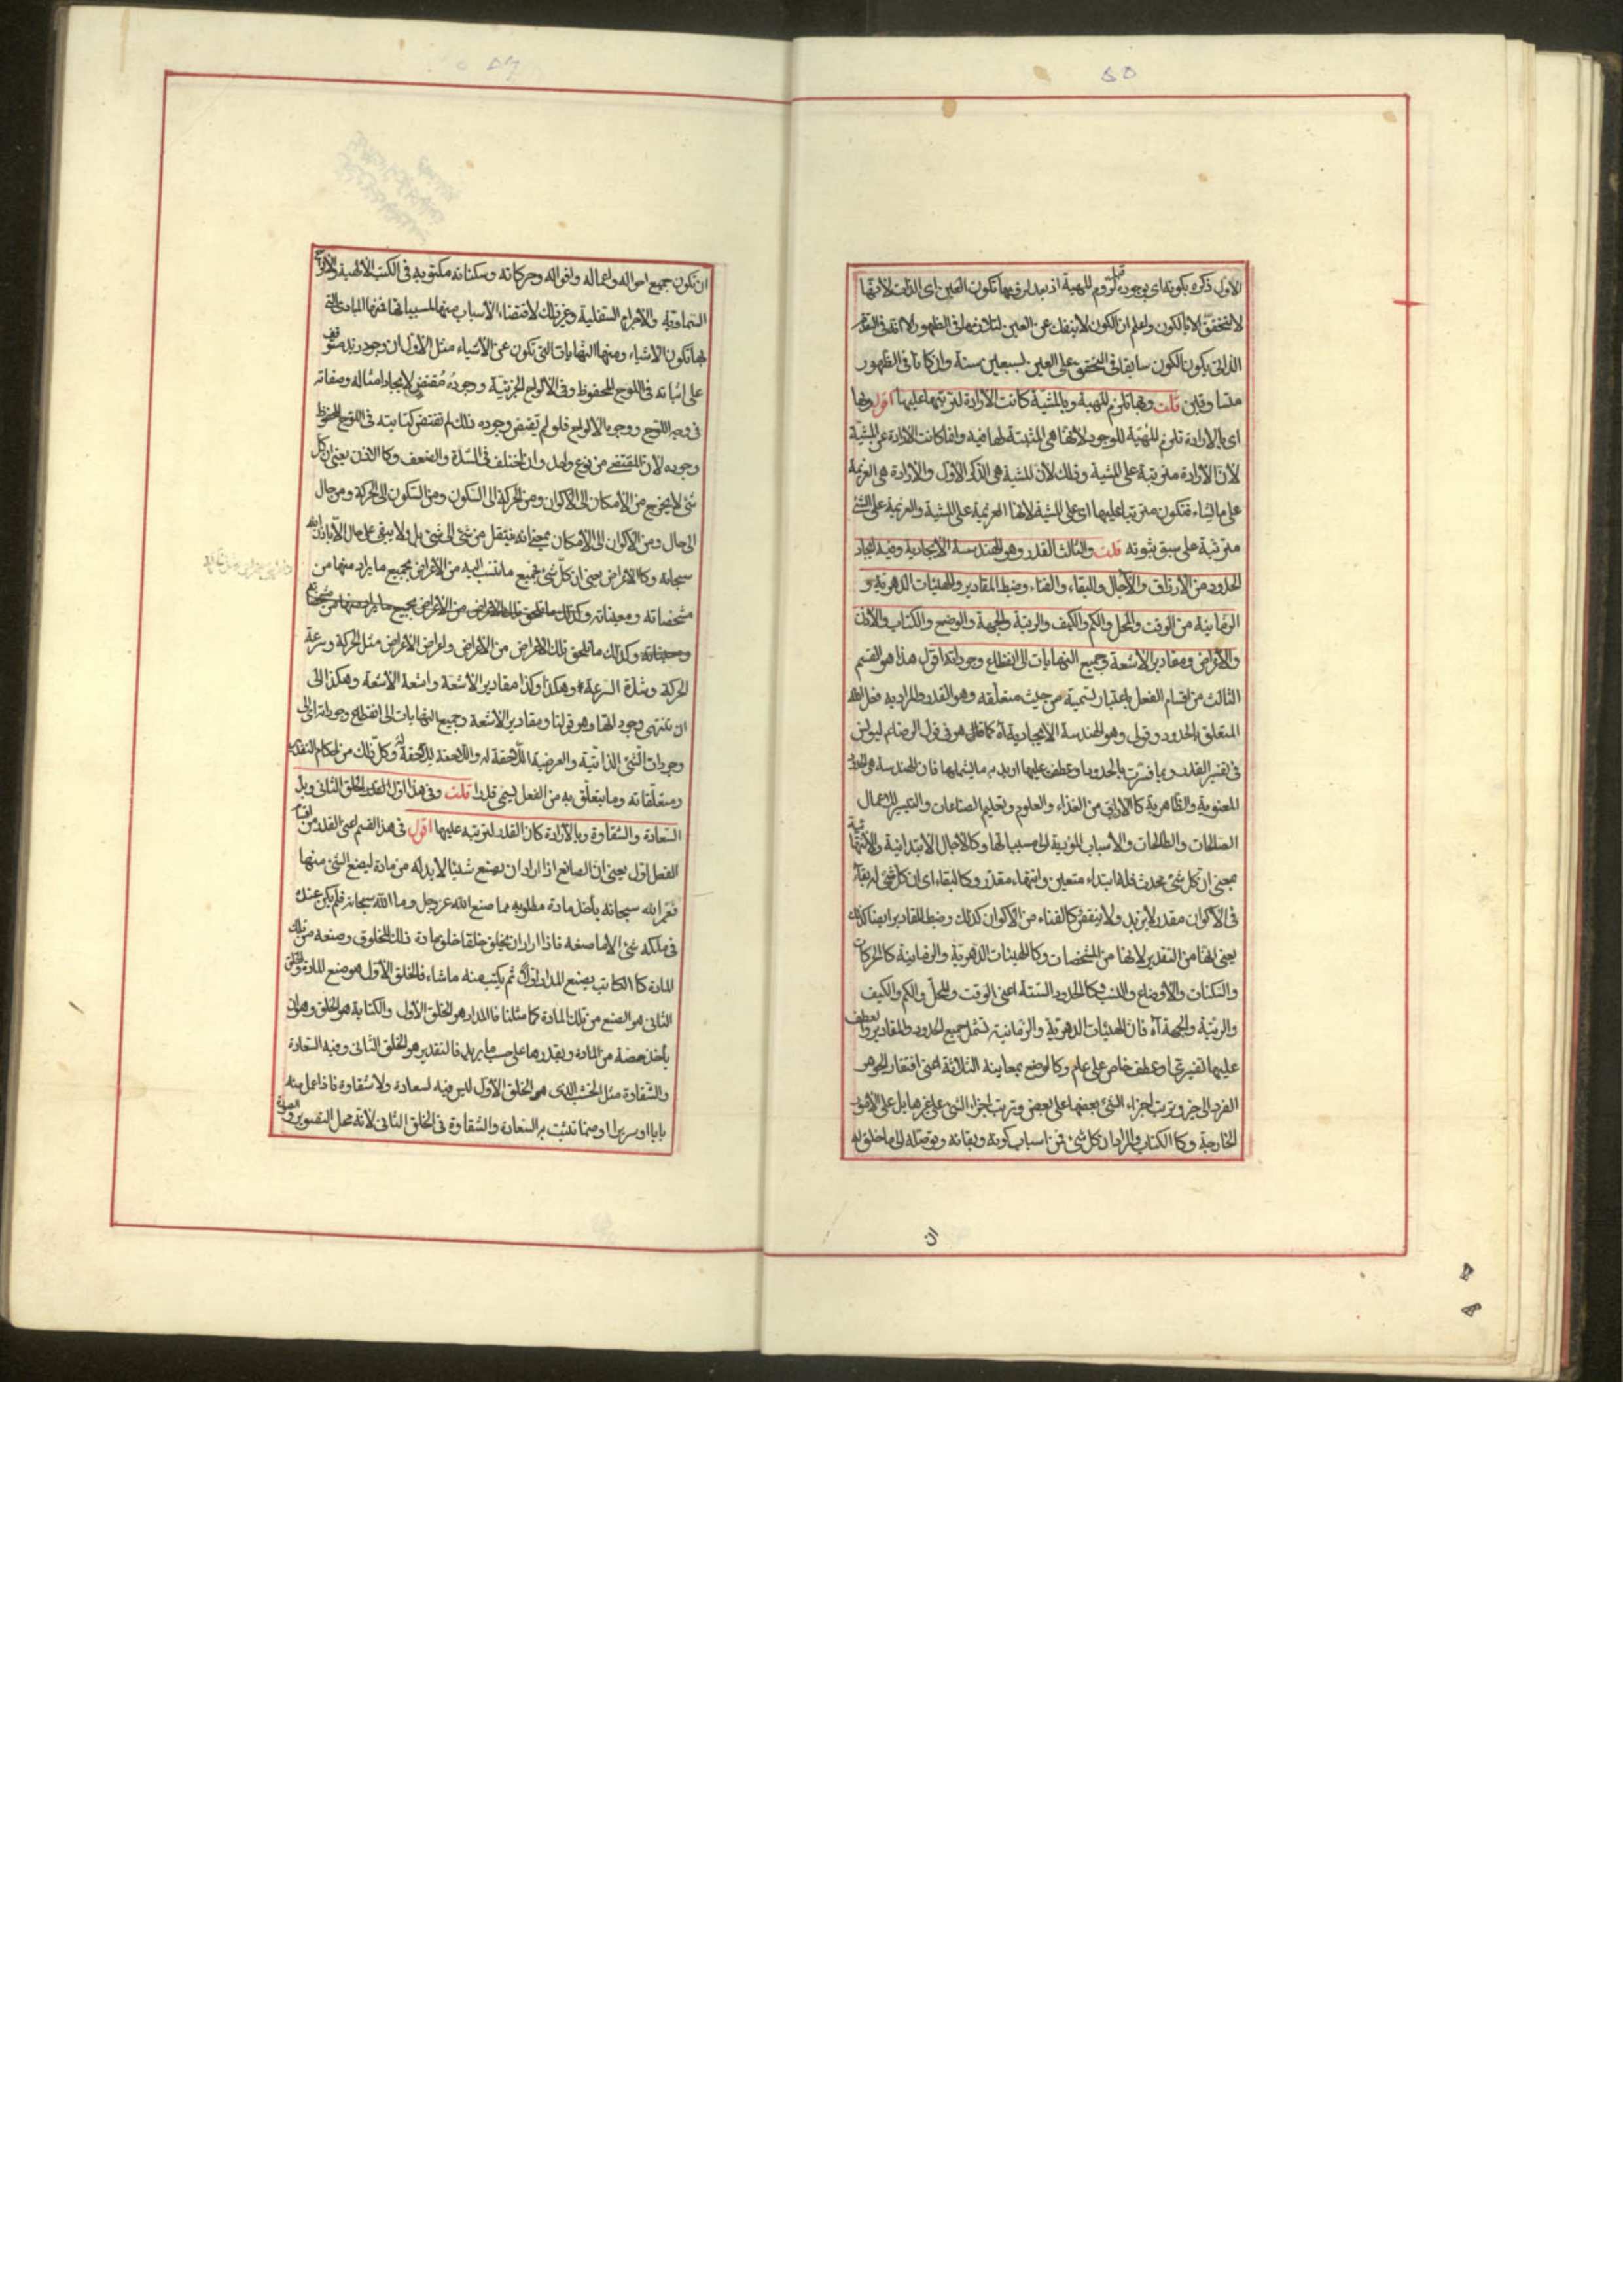 ٥٥
الأول ذكره بكونه اى بوجوده قبل لزوم المهية اذ بعد لزومها تكون العين اى الذات لانها
لا تتحقق الا بالكون واعلم ان الكون لا ينفك عن العين لتلازمهما فى الظهور الا انه فى التقدم
الذاتى يكون الكون سابقا فى التحقق على العين بسبعين سنة وان كانا فى الظهور
متساوقين قلت وبها تلزم المهية وبالمشية كانت الارادة لترتبها عليها اقول وبها
اى بالارادة تلزم المهية للوجود لانها هى المثبتة لها فيه وانما كانت الارادة عن المشية
لان الارادة مترتبة على المشية وذلك لان المشية هى الذكر الاول والارادة هى العزيمة
على ما يشاء فتكون مترتبا عليها اى على المشية لانها العزيمة على المشية والعزيمة على الشئ
مترتبة على سبق ثبوته قلت والثالث القدر وهو الهندسة الايجادية وفيه ايجاد
الحدود من الارزاق والآجال والبقاء والفناء وضبط المقادير والهيئات الدهرية و
الزمانية من الوقت والمحل والكم والكيف والرتبة والجهة والوضع والكتاب والاذن
والاعراض ومقادير الاشعة وجميع النهايات الى انقطاع وجوداته اقول هذا هو القسم
الثالث من اقسام الفعل باعتبار تسميته من حيث متعلقه وهو القدر والمراد به فعل الله
المتعلق بالحدود وقولى وهو الهندسة الايجادية آه كما قال هو فى قول الرضا ع ليونس
فى تفسير القدر وبما فسرت بالحدود وما عطف عليها اريد به ما يشملها فان الهندسة هى الحدود
المعنوية والظاهرية كالارزاق من الغذاء والعلوم وتعليم الصناعات والتيسير للاعمال
الصالحات والطالحات والاسباب المؤدية الى مسبباتها وكالآجال الابتدائية والانتهائية
بمعنى ان كل شئ محدث فله ابتداء متعين وانتهاء مقدر وكالبقاء اى ان كل شئ له بقاء
فى الاكوان مقدر لا يزيد ولا ينقص وكالفناء من الاكوان كذلك وضبط المقادير ايضا كذلك
يعنى انها من التقدير لانها من المشخصات وكالهيئات الدهرية والزمانية كالحركات
والسكنات والاوضاع والنسب وكالحدود الستة اعنى الوقت والمحل والكم والكيف
والرتبة والجهة آه فان الهيئات الدهرية والزمانية تشمل جميع الحدود والمقادير والعطف
عليها تفسيرى او عطف خاص على عام وكالوضع بمعانيه الثلاثة اعنى افتقار الجوهر
الفرد الى حيز وترتب اجزاء الشئ بعضها على بعض وترتب اجزاء الشئ على غيرها بل على الامور
الخارجة وكالكتاب والمراد ان كل شئ فمن اسباب كونه وبقائه وتوصله الى ما خلق له
ان
ان تكون جميع احواله واعماله واقواله وحركاته وسكناته مكتوبة فى الكتب الالهية والالواح
السماوية والاجرام السفلية وغير ذلك لاقتضاء الاسباب منها لمسبباتها فمنها المبادى التى
بها تكون الاشياء ومنها النهايات التى تكون عن الاشياء مثل الاول ان وجود زيد متوقف
على اثباته فى اللوح المحفوظ وفى الالواح الجزئية ووجوده مقتض لايجاد امثاله وصفاته
فى وجه اللوح ووجوه الالواح فلو لم تقتض وجوده ذلك لم تقتض كتابته فى اللوح المحفوظ
وجوده لان المقتضى من نوع واحد وان اختلف فى الشدة والضعف وكالاذن يعنى ان كل
شئ لا يخرج من الامكان الى الاكوان ومن الحركة الى السكون ومن السكون الى الحركة ومن حال
الى حال ومن الاكوان الى الامكان بمعنى انه ينتقل من شئ الى شئ بل ولا يبقى على حال الا باذن الله
سبحانه وكالاعراض يعنى ان كل شئ فجميع ما تنسب اليه من الاعراض بجميع ما يراد منها من
مشخصاته ومعيناته وكذلك ما يلحق تلك الاعراض من الاعراض بجميع ما يراد منها من مشخصاته
ومعيناته وكذلك ما يلحق تلك الاعراض من الاعراض واعراض الاعراض مثل الحركة وسرعة
الحركة وشدة السرعة وهكذا وكذا مقادير الاشعة واشعة الاشعة وهكذا الى
ان تنتهى وجوداتها وهو قولنا ومقادير الاشعة وجميع النهايات الى انقطاع وجوداته اى الى
وجودات الشئ الذاتية والعرضية اللاحقة له واللاحقة للاحقه وكل ذلك من احكام التقدير
ومتعلقاته وما يتعلق به من الفعل يسمى قدرا قلت وفى هذا اول الخلق الثانى وبدء
السعادة والشقاوة وبالارادة كان القدر لترتبه عليها اقول فى هذا القسم اعنى القدر من اقسام
الفعل اول يعنى ان الصانع اذا اراد ان يصنع شيئا لابد له من مادة ليصنع الشئ منها
فغير الله سبحانه يأخذ مادة مطلوبه مما صنع الله عز وجل وما الله سبحانه فلم يكن عنده
فى ملكه شئ الا ما صنعه فاذا اراد ان يخلق خلقا خلق مادة ذلك المخلوق وصنعه من تلك
المادة كالكاتب يصنع المداد اولا ثم يكتب منه ما شاء فالخلق الاول هو صنع المادة والخلق
الثانى هو الصنع من تلك المادة كما مثلنا فالمداد هو الخلق الاول والكتابة هو الخلق وهو ان
يأخذ حصة من المادة ويقدرها على حسب ما يريد فالتقدير هو الخلق الثانى وفيه السعادة
والشقاوة مثل الخشب الذى هو الخلق الاول ليس فيه لسعادة ولا شقاوة فاذا عمل منه
بابا او سريرا او صنما تثبت به السعادة والشقاوة فى الخلق الثانى لانه محل التصوير والصورة